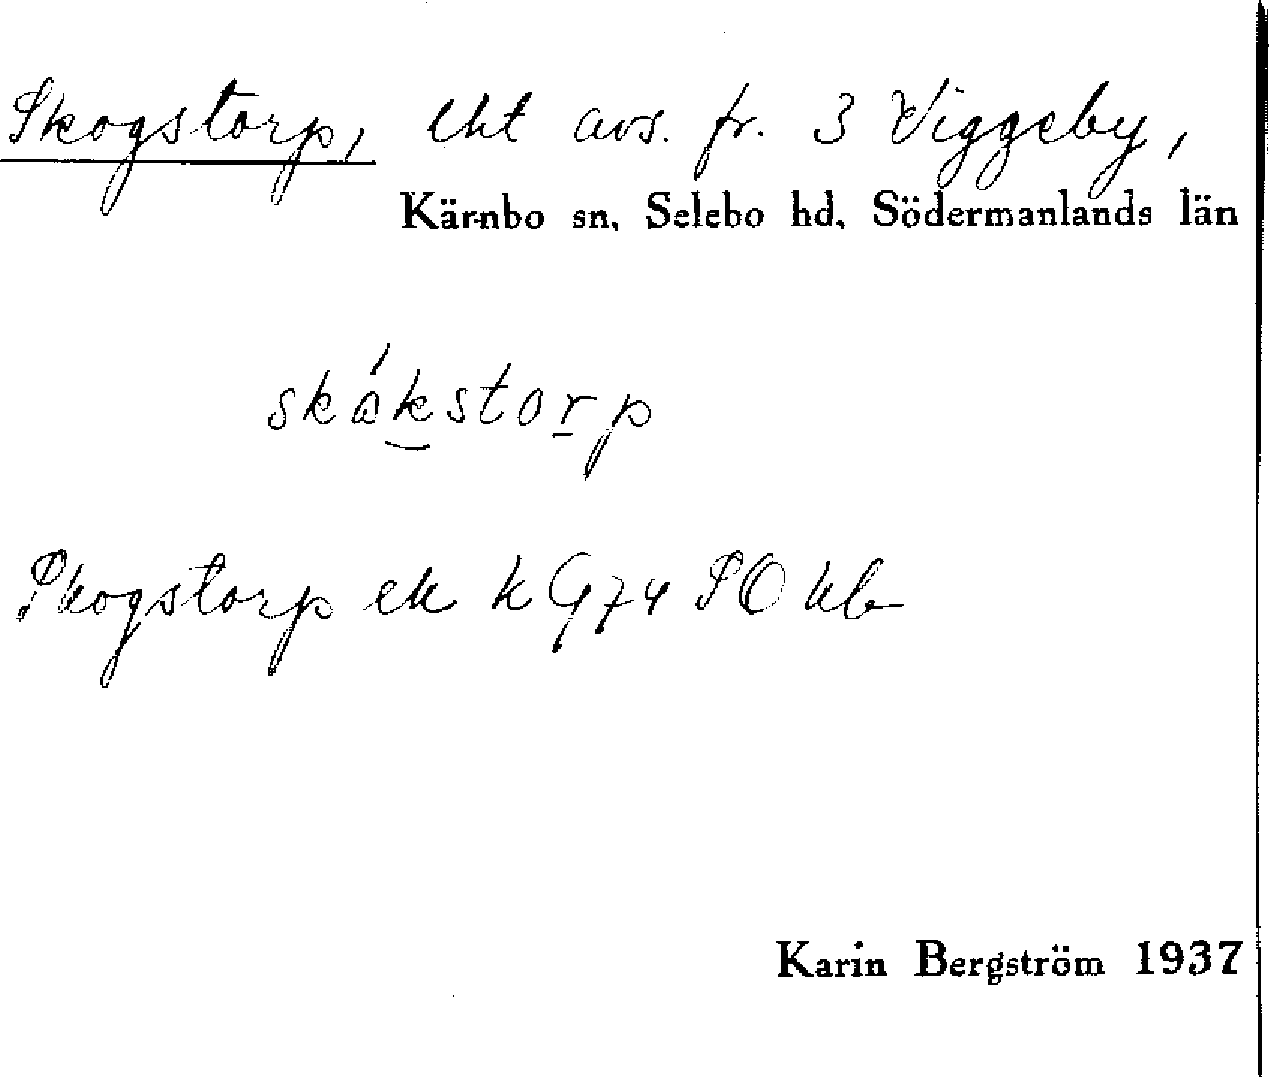 Skogstorp, lht avs. fr. 3 Viggeby,
Kärnbo sn, Selebo hd, Södermanlands län
skåkstorp
Skogstorp ek k G74 SO kb
Karin Bergström 1937